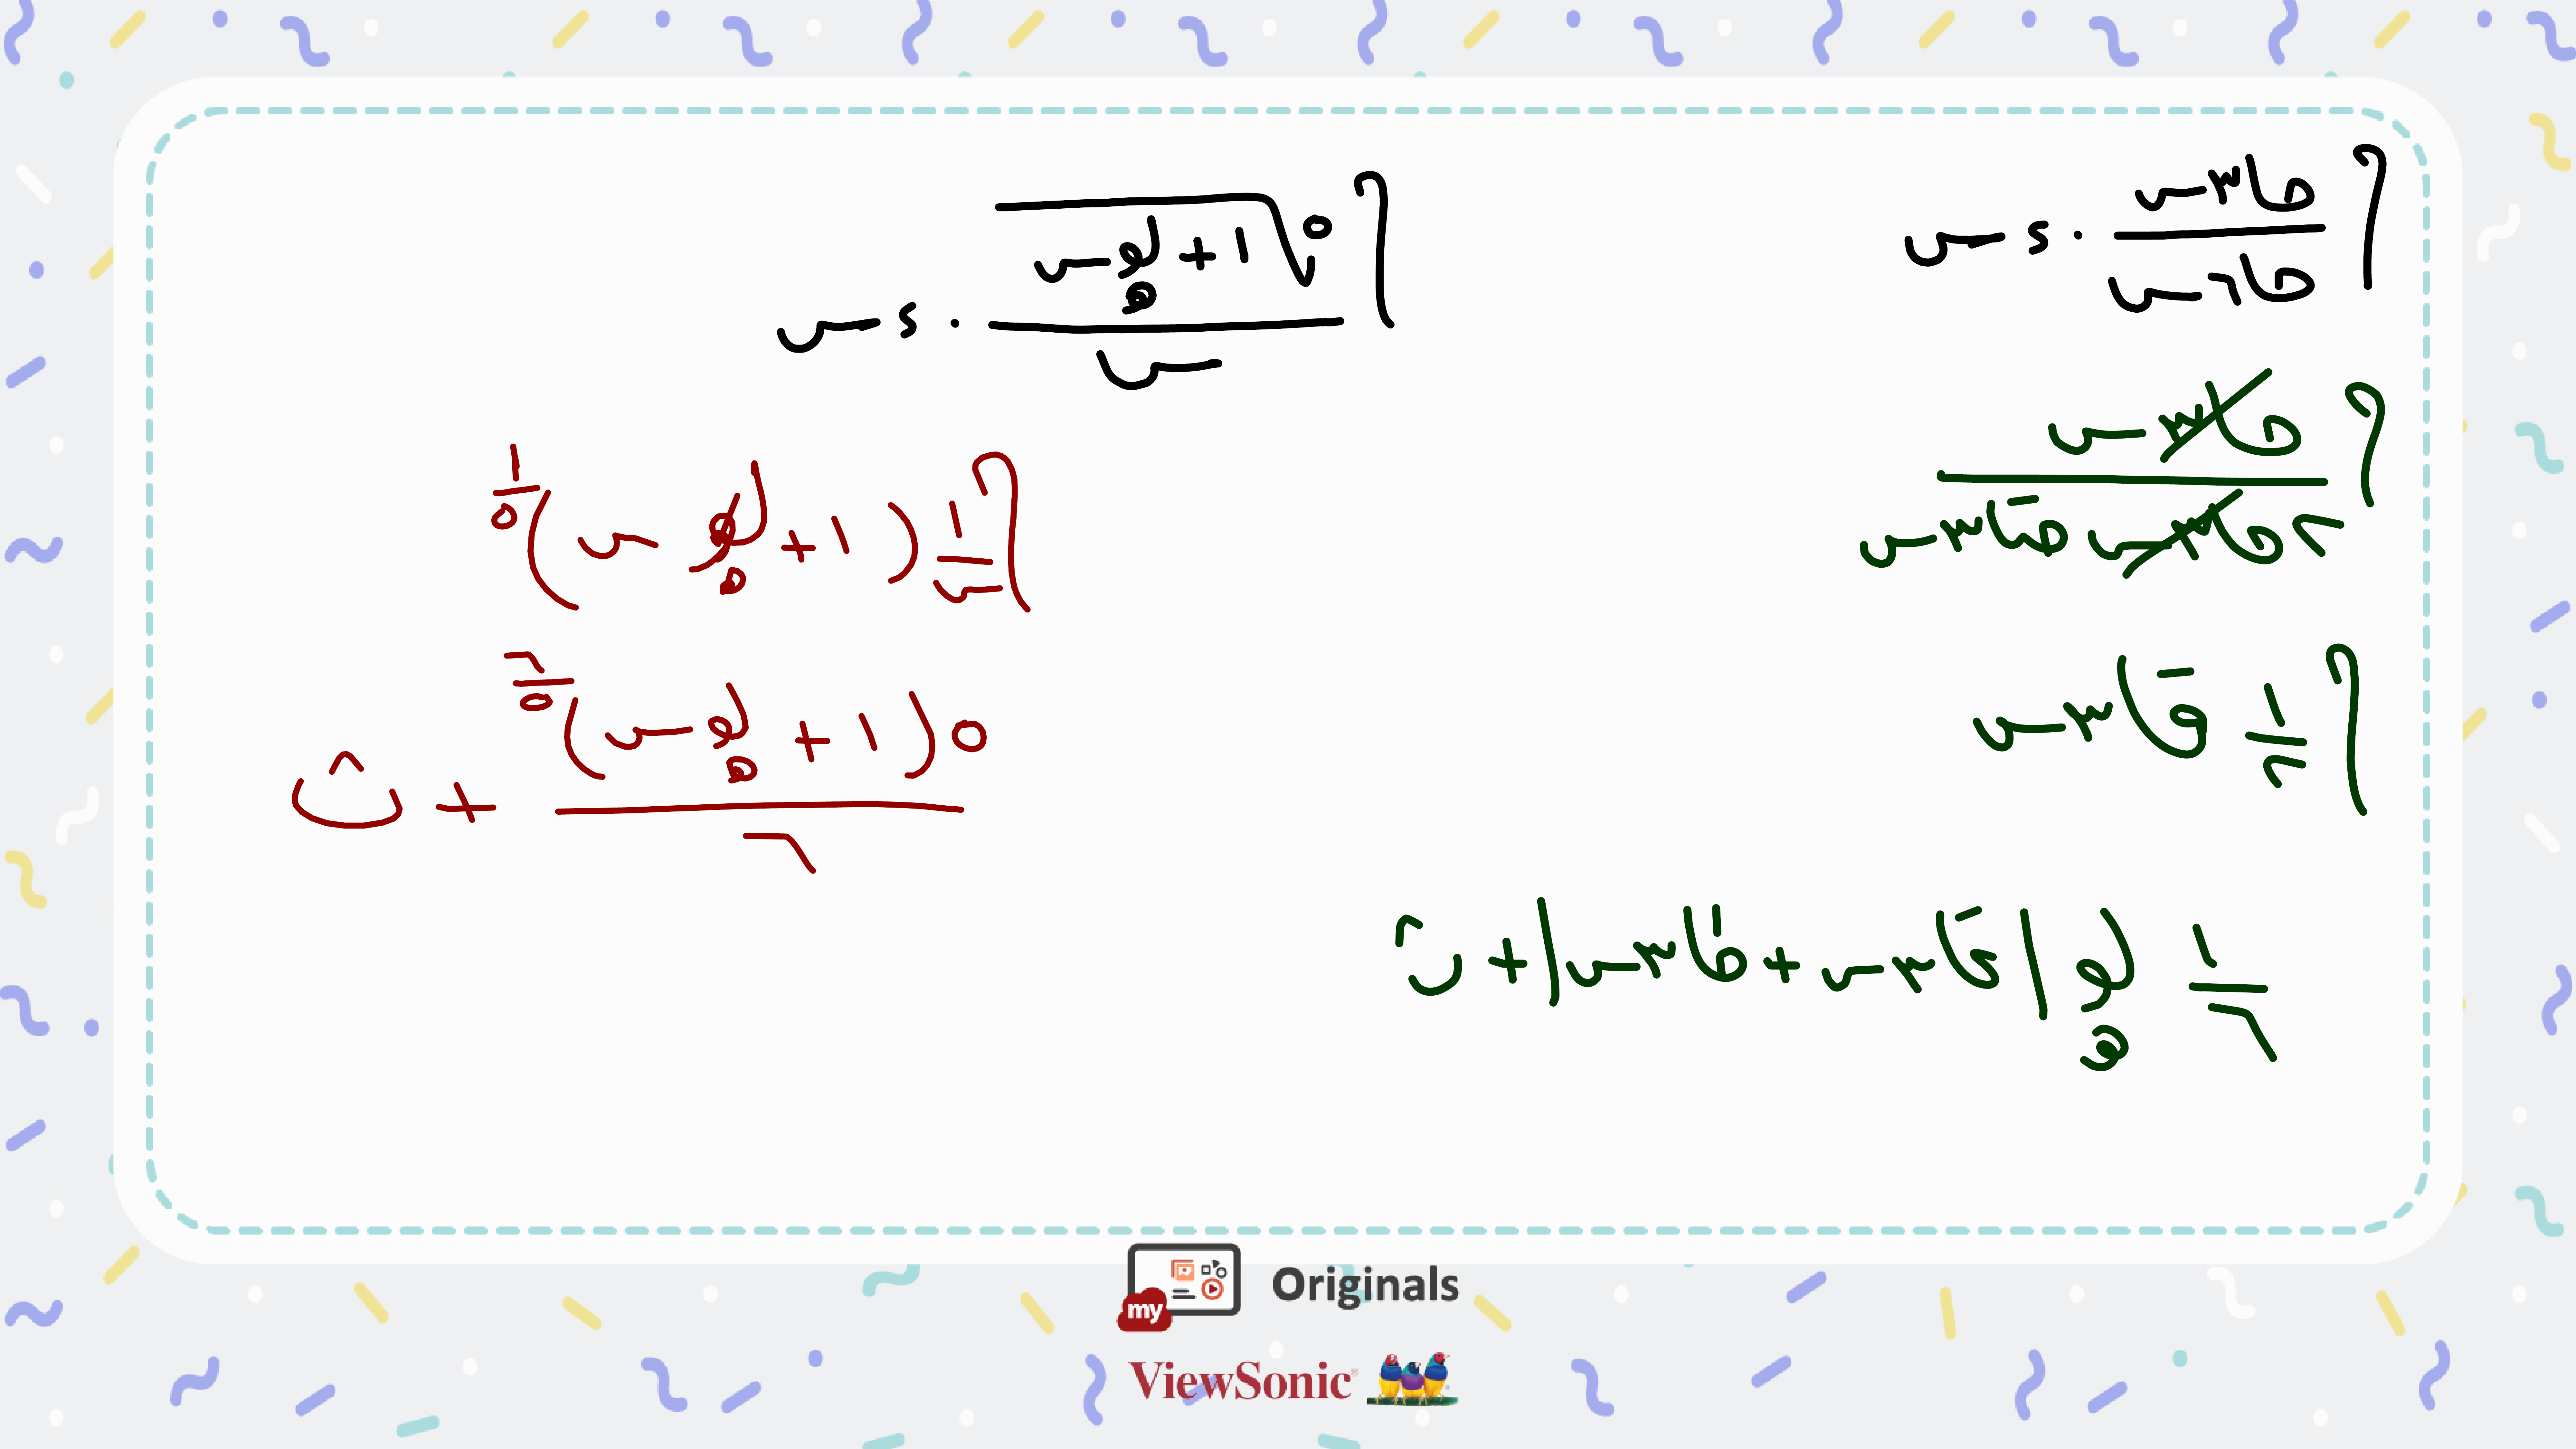 ∫ (جا٣س / جا٦س) · ءس
∫ (جا٣س / ٢جا٣س جتا٣س)
∫ ١/٢ قا٣س
١/٦ لو_هـ |قا٣س + ظا٣س| + ث
∫ (⁵√(١ + لو_هـ س) / س) · ءس
∫ ١/س (١ + لو_هـ س)^(١/٥)
٥(١ + لو_هـ س)^(٦/٥) / ٦ + ث
my Originals
ViewSonic®